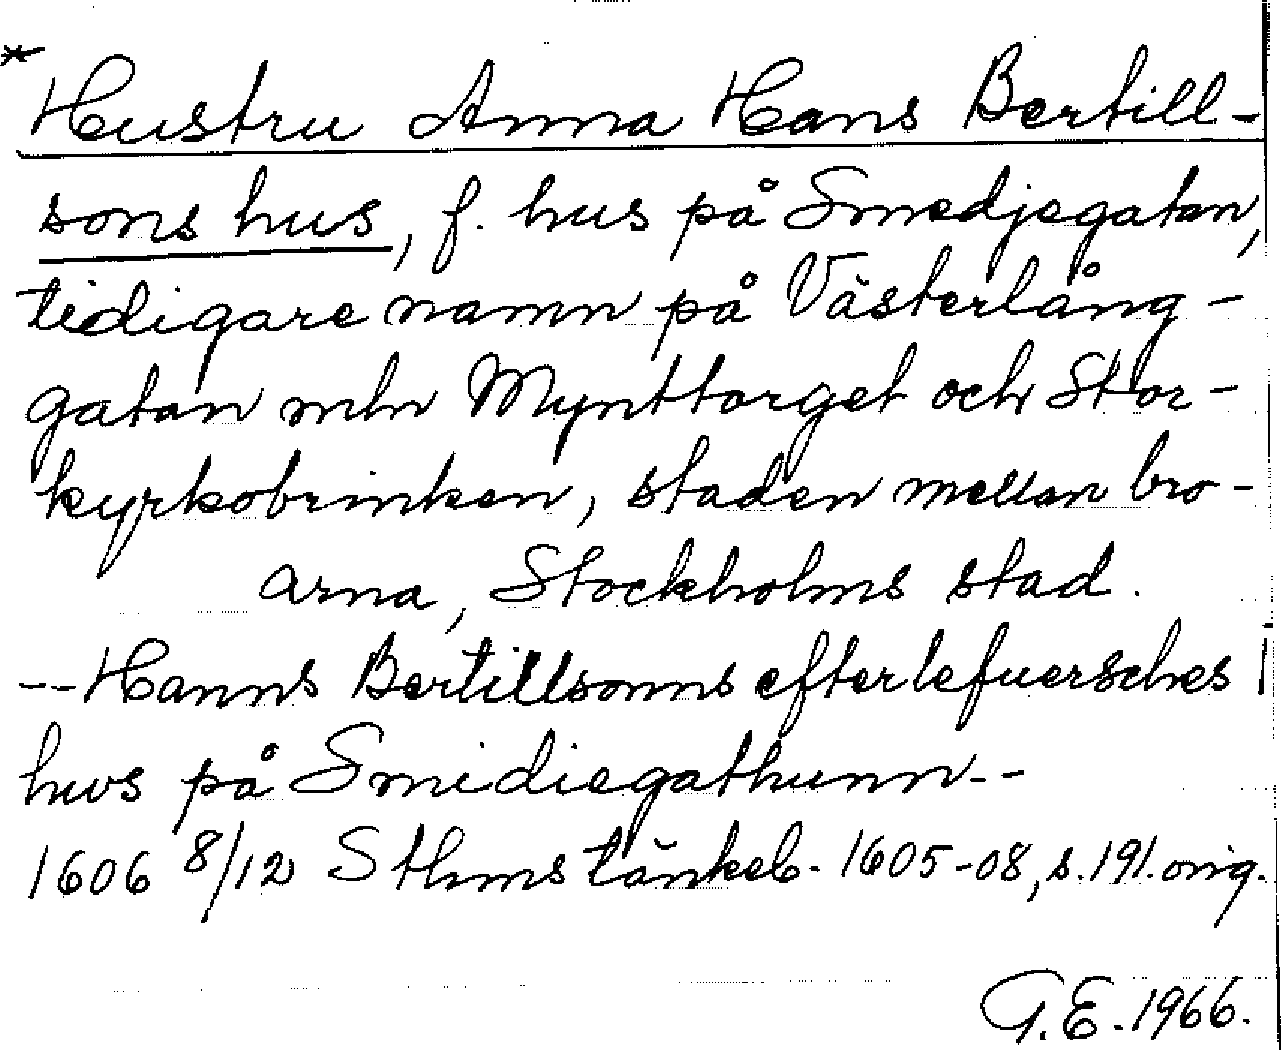 * Hustru Anna Hans Bertill-
sons hus, f. hus på Smedjegatan,
tidigare namn på Västerlång-
gatan mln Mynttorget och Stor-
kyrkobrinken, staden mellan bro-
arna, Stockholms stad.
-- Hanns Bertillsonns efterlefuersches
hws på Smidiegathunn--
1606 8/12 Sthms tänkeb. 1605-08, s. 191. orig.
G.E. 1966.